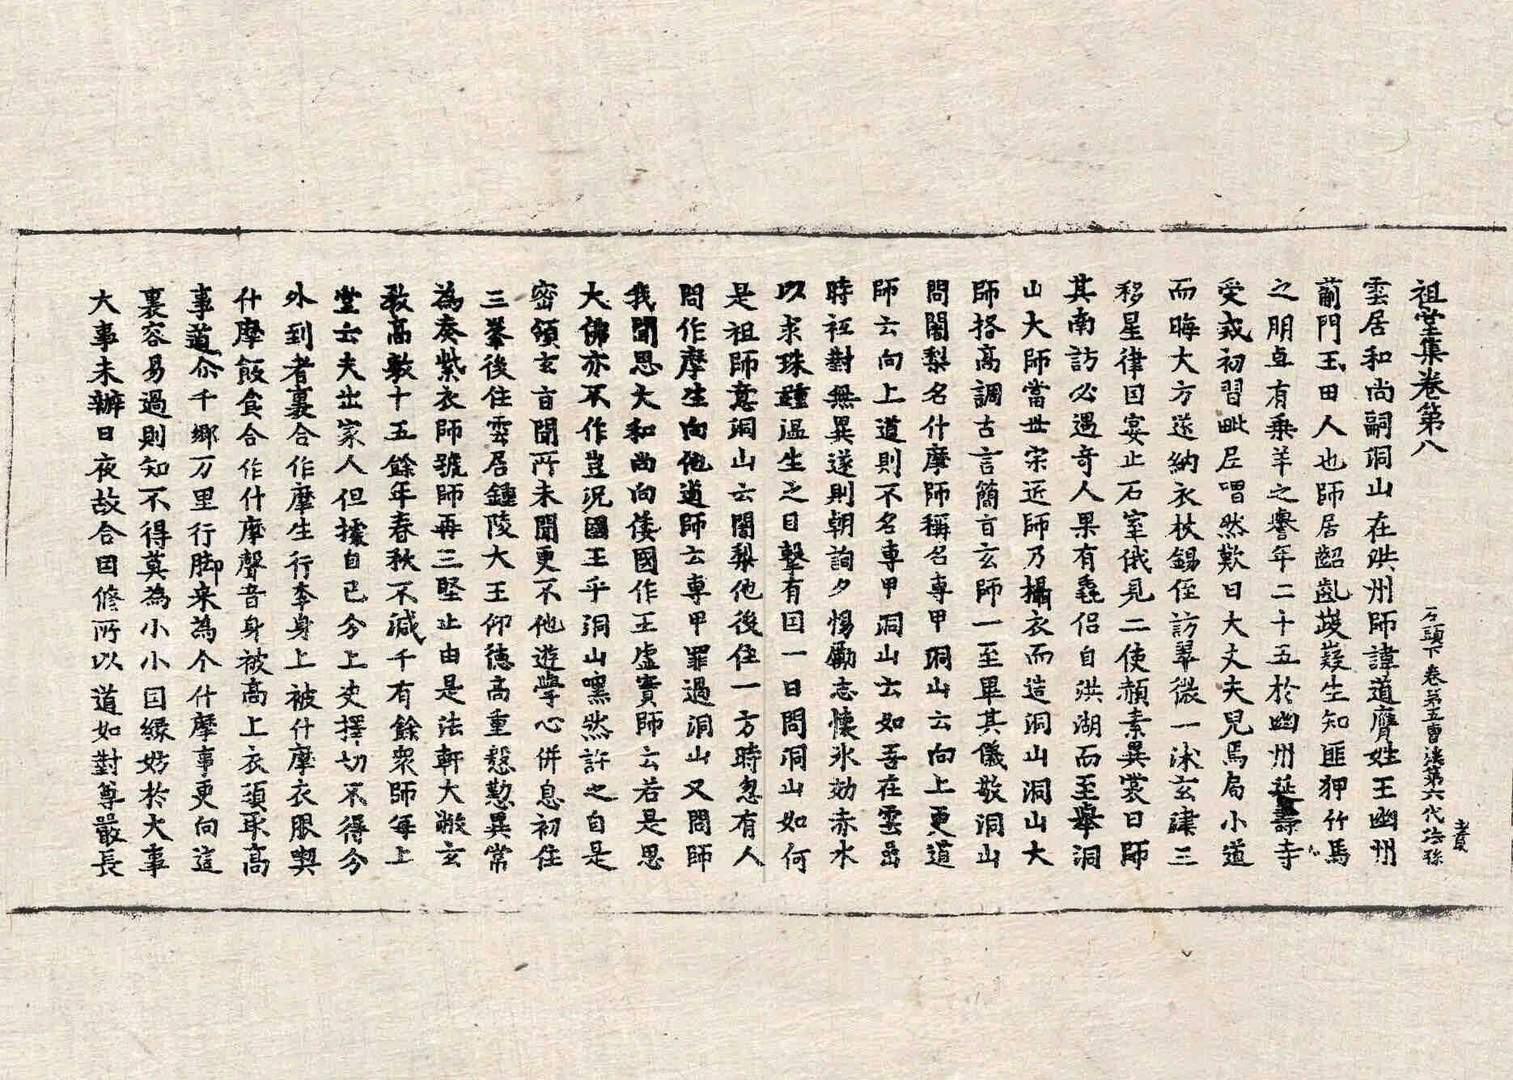 祖堂集卷第八 石頭下卷第五曹溪第六代法孫
雲居和尚嗣洞山在洪州師諱道膺姓王幽州
薊門玉田人也師居齠齔嶷嶷生知匪狎竹馬
之朋卓有乗羊之譽年二十五於幽州延壽寺
受戒初習毗尼喟然歎曰大丈夫兒焉局小道
而晦大方遂納衣杖錫侄訪翠微一沐玄津三
移星律因宴止石室俄見二使顔素異裳曰師
其南訪必遇奇人果有毳侣自洪湖而至舉洞
山大師當世宗近師乃攝衣而造洞山洞山大
師格高調古言簡旨玄師一至畢其儀敬洞山
問闍梨名什摩師稱名専甲洞山云向上更道
師云向上道則不名専甲洞山云如吾在雲嵒
時祗對無異遂則朝詢夕惕勵志懷氷効赤水
以求珠雖温生之目擊有因一日問洞山如何
是祖師意洞山云闍梨他後住一方時忽有人
問作摩生向他道師云専甲罪過洞山又問師
我聞思大和尚向倭國作王虚實師云若是思
大佛亦不作豈況國王乎洞山嘿然許之自是
密領玄旨聞所未聞更不他遊學心併息初住
三峯後住雲居鍾陵大王仰德高重慇懃異常
為奏紫衣師號師再三堅止由是法軒大敞玄
教高敷十五餘年春秋不減千有餘衆師每上
堂云夫出家人但據自己分上决擇切不得分
外到者裏合作摩生行李身上被什摩衣服喫
什摩飯食合作什摩聲音身被高上衣須求高
事道尒千郷万里行脚来為个什摩事更向這
裏容易過則知不得莫為小小因縁妨於大事
大事未辦日夜故合因修所以道如對尊嚴長